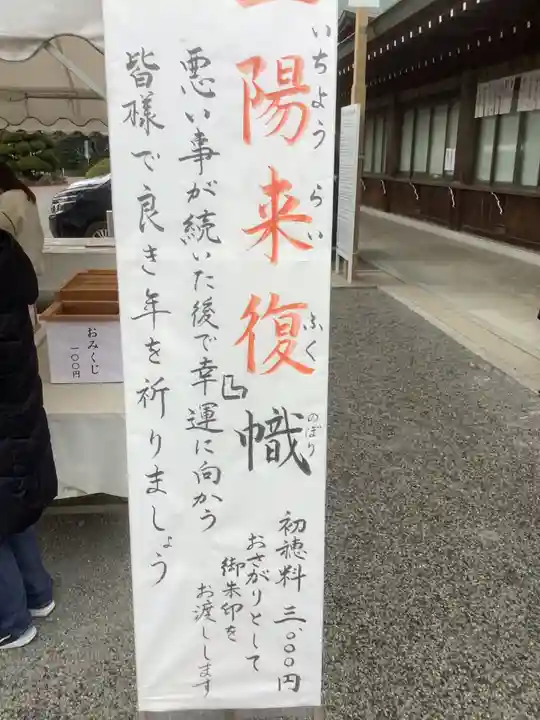 一陽来復幟
いちようらいふく
のぼり
悪い事が続いた後で幸運に向かう
皆様で良き年を祈りましょう
初穂料 三、〇〇〇円
おさがりとして
御朱印を
お渡しします
おみくじ
一〇〇円